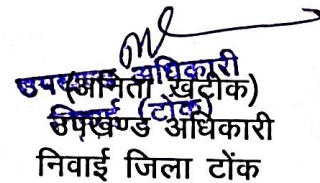 उपखण्ड अधिकारी
(अनिता खटीक)
निवाई (टोंक)
उपखण्ड अधिकारी
निवाई जिला टोंक